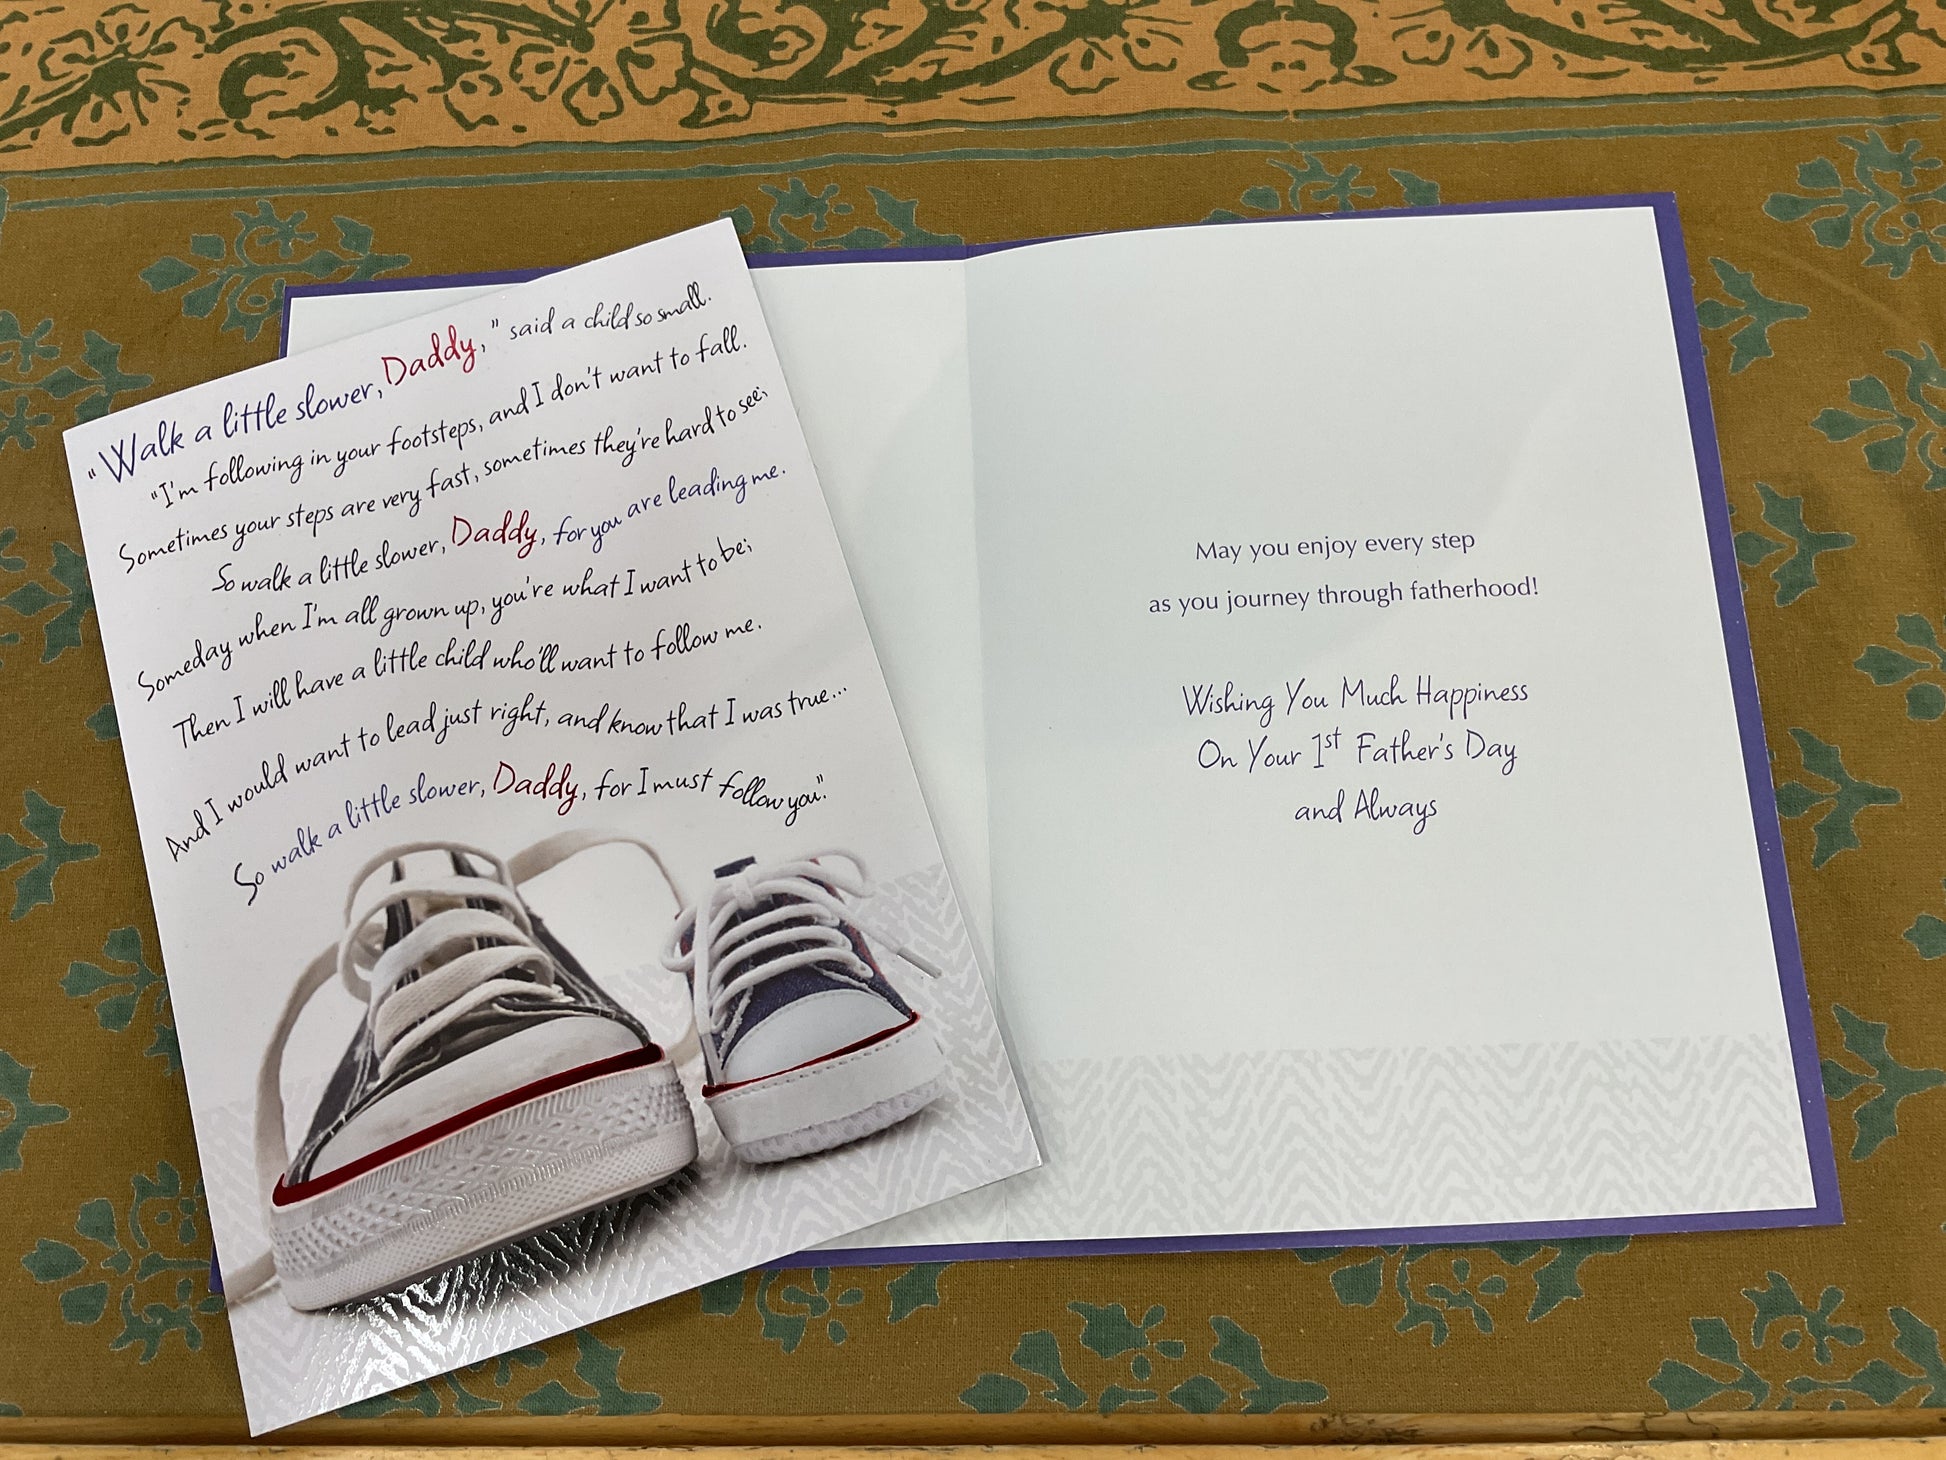 "Walk a little slower, Daddy," said a child so small.
"I'm following in your footsteps, and I don't want to fall.
Sometimes your steps are very fast, sometimes they're hard to see;
So walk a little slower, Daddy, for you are leading me.
Someday when I'm all grown up, you're what I want to be;
Then I will have a little child who'll want to follow me.
And I would want to lead just right, and know that I was true...
So walk a little slower, Daddy, for I must follow you."
May you enjoy every step
as you journey through fatherhood!
Wishing You Much Happiness
On Your 1st Father's Day
and Always